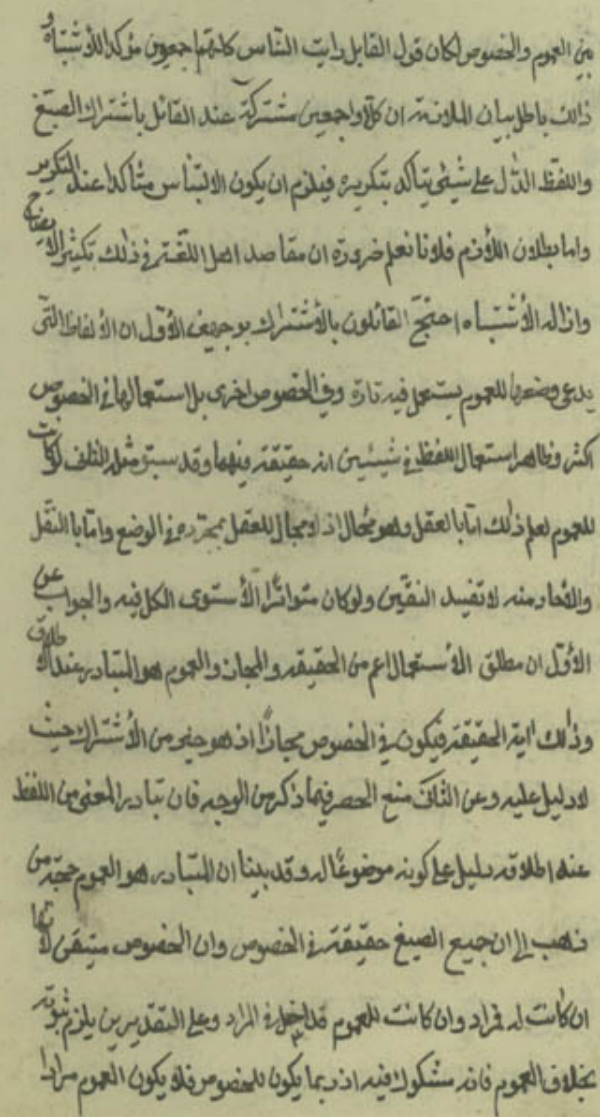 بين العموم والخصوص لكان قول القايل رايت الناس كلهم اجمعين مؤكدا للاشتباه و
ذلك باطل بيان الملازمة ان كلا واجمعين مشتركة عند القائل باشتراك الصيغ
واللفظ الدال على شيئ يتأكد بتكريره فيلزم ان يكون الالتباس متأكدا عند التكرير
واما بطلان اللازم فلانا نعلم ضرورة ان مقاصد اهل اللغة في ذلك تكثير الايضاح
وازالة الاشتباه احتج القائلون بالاشتراك بوجهين الاول ان الالفاظ التي
يدعى وضعها للعموم يستعمل فيه تارة وفي الخصوص اخرى بل استعمالها في الخصوص
اكثر وظاهر استعمال اللفظ في شيئين انه حقيقة فيهما وقد سبق مثله الثاني لو كانت
للعموم لعلم ذلك اما بالعقل وهو محال اذ لا مجال للعقل بمجرده في الوضع واما بالنقل
والاحاد منه لا تفيد اليقين ولو كان متواترا لاستوى الكل فيه والجواب عن
الاول ان مطلق الاستعمال اعم من الحقيقة والمجاز والعموم هو المتبادر عند الاطلاق
وذلك اية الحقيقة فيكون في الخصوص مجازا اذ هو خير من الاشتراك حيث
لا دليل عليه وعن الثاني منع الحصر فيما ذكر من الوجه فان تبادر المعنى من اللفظ
عند اطلاقه دليل على كونه موضوعا له وقد بينا ان المتبادر هو العموم حجة من
ذهب الى ان جميع الصيغ حقيقة في الخصوص وان الخصوص متيقن لانها
ان كانت له فمراد وان كانت للعموم فداخل في المراد وعلى التقديرين يلزم ثبوته
بخلاف العموم فانه مشكوك فيه اذ ربما يكون للخصوص فلا يكون العموم مرادا